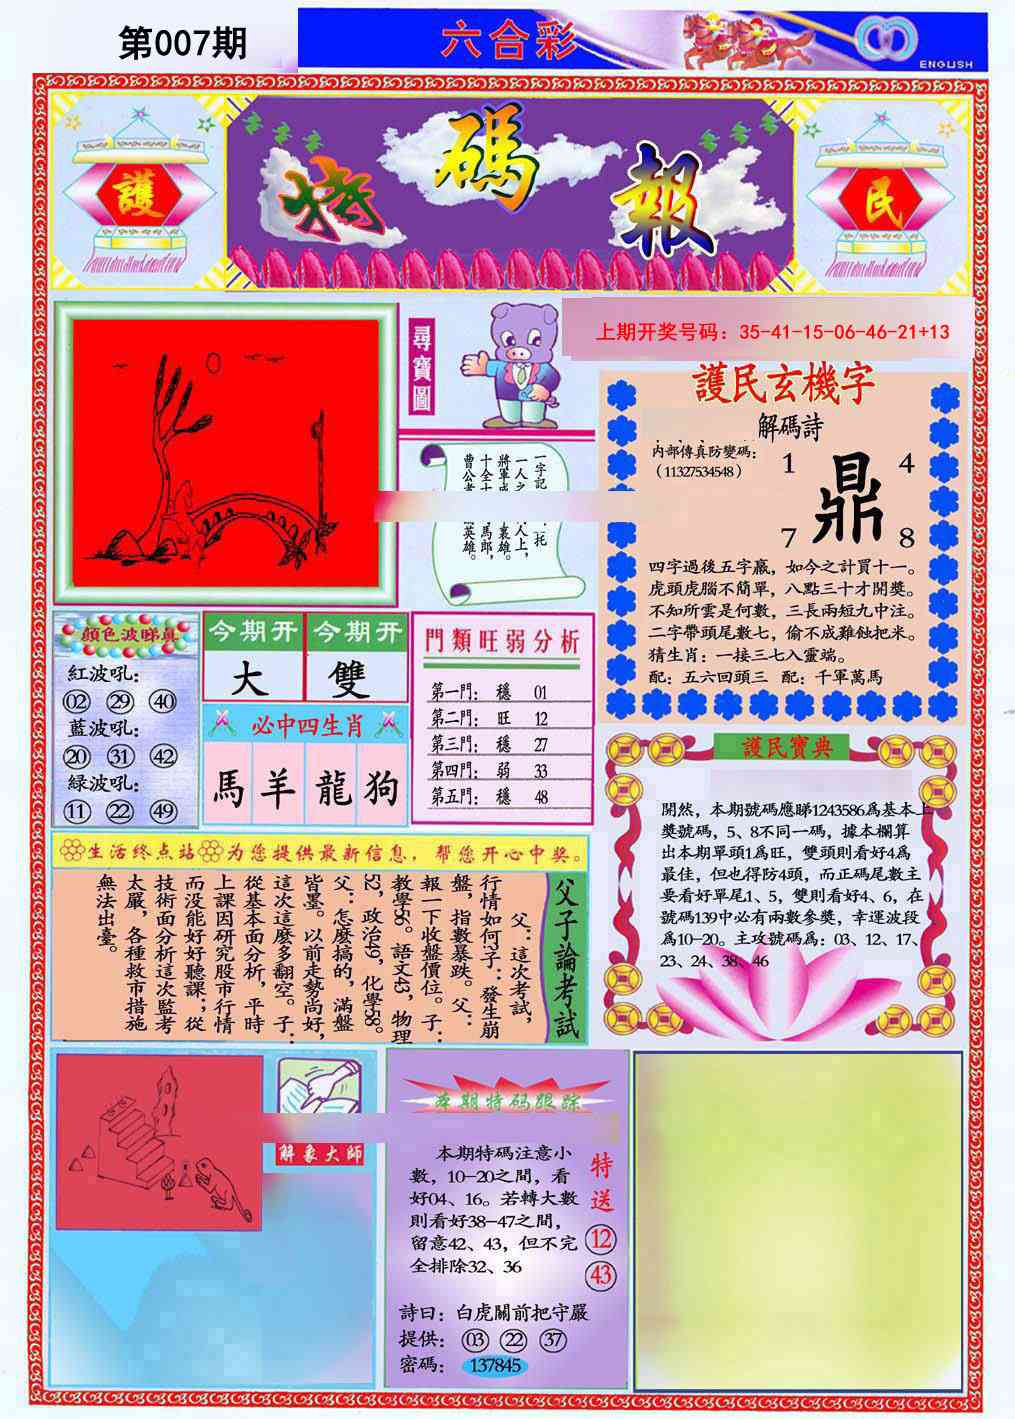 第007期
六合彩
ENGLISH
護
特碼報
民
尋寶圖
上期开奖号码：35-41-15-06-46-21+13
護民玄機字
解碼詩
内部傳真防變碼：
（11327534548）
1 4
鼎
7 8
四字過後五字贏，如今之計買十一。
虎頭虎腦不簡單，八點三十才開獎。
不知所雲是何數，三長兩短九中注。
二字帶頭尾數七，偷不成雞蝕把米。
猜生肖：一接三七入靈端。
配：五六回頭三 配：千軍萬馬
一字記
托
一人之
人上，
將軍
裏雄。
十全
馬郎，
曹公
英雄。
顔色波睇真
紅波吼：
02 29 40
藍波吼：
20 31 42
緑波吼：
11 22 49
今期开 今期开
大 雙
必中四生肖
馬 羊 龍 狗
門類旺弱分析
第一門： 穩 01
第二門： 旺 12
第三門： 穩 27
第四門： 弱 33
第五門： 穩 48
護民寶典
開然，本期號碼應睇1243586爲基本上
獎號碼，5、8不同一碼，據本欄算
出本期單頭1爲旺，雙頭則看好4爲
最佳，但也得防4頭，而正碼尾數主
要看好單尾1、5，雙則看好4、6，在
號碼139中必有兩數參獎，幸運波段
爲10-20。主攻號碼爲：03、12、17、
23、24、38、46
生活终点站 为您提供最新信息，帮您开心中奖。
父子論考試
父：這次考試，
行情如何子：發生崩
盤，指數暴跌。父：
報一下收盤價位。子：
教學56。語文43，物理
52，政治49，化學58。
父：怎麽搞的，滿盤
皆墨。以前走勢尚好，
這次這麽多翻空。子：
從基本面分析，平時
上課因研究股市行情
而没能好好聽課；從
技術面分析這次監考
太嚴，各種救市措施
無法出臺。
解象大師
本期特码跟踪
本期特碼注意小
數，10-20之間，看
好04、16。若轉大數
則看好38-47之間，
留意42、43，但不完
全排除32、36
特送
12
43
詩曰：白虎關前把守嚴
提供：03 22 37
密碼：137845